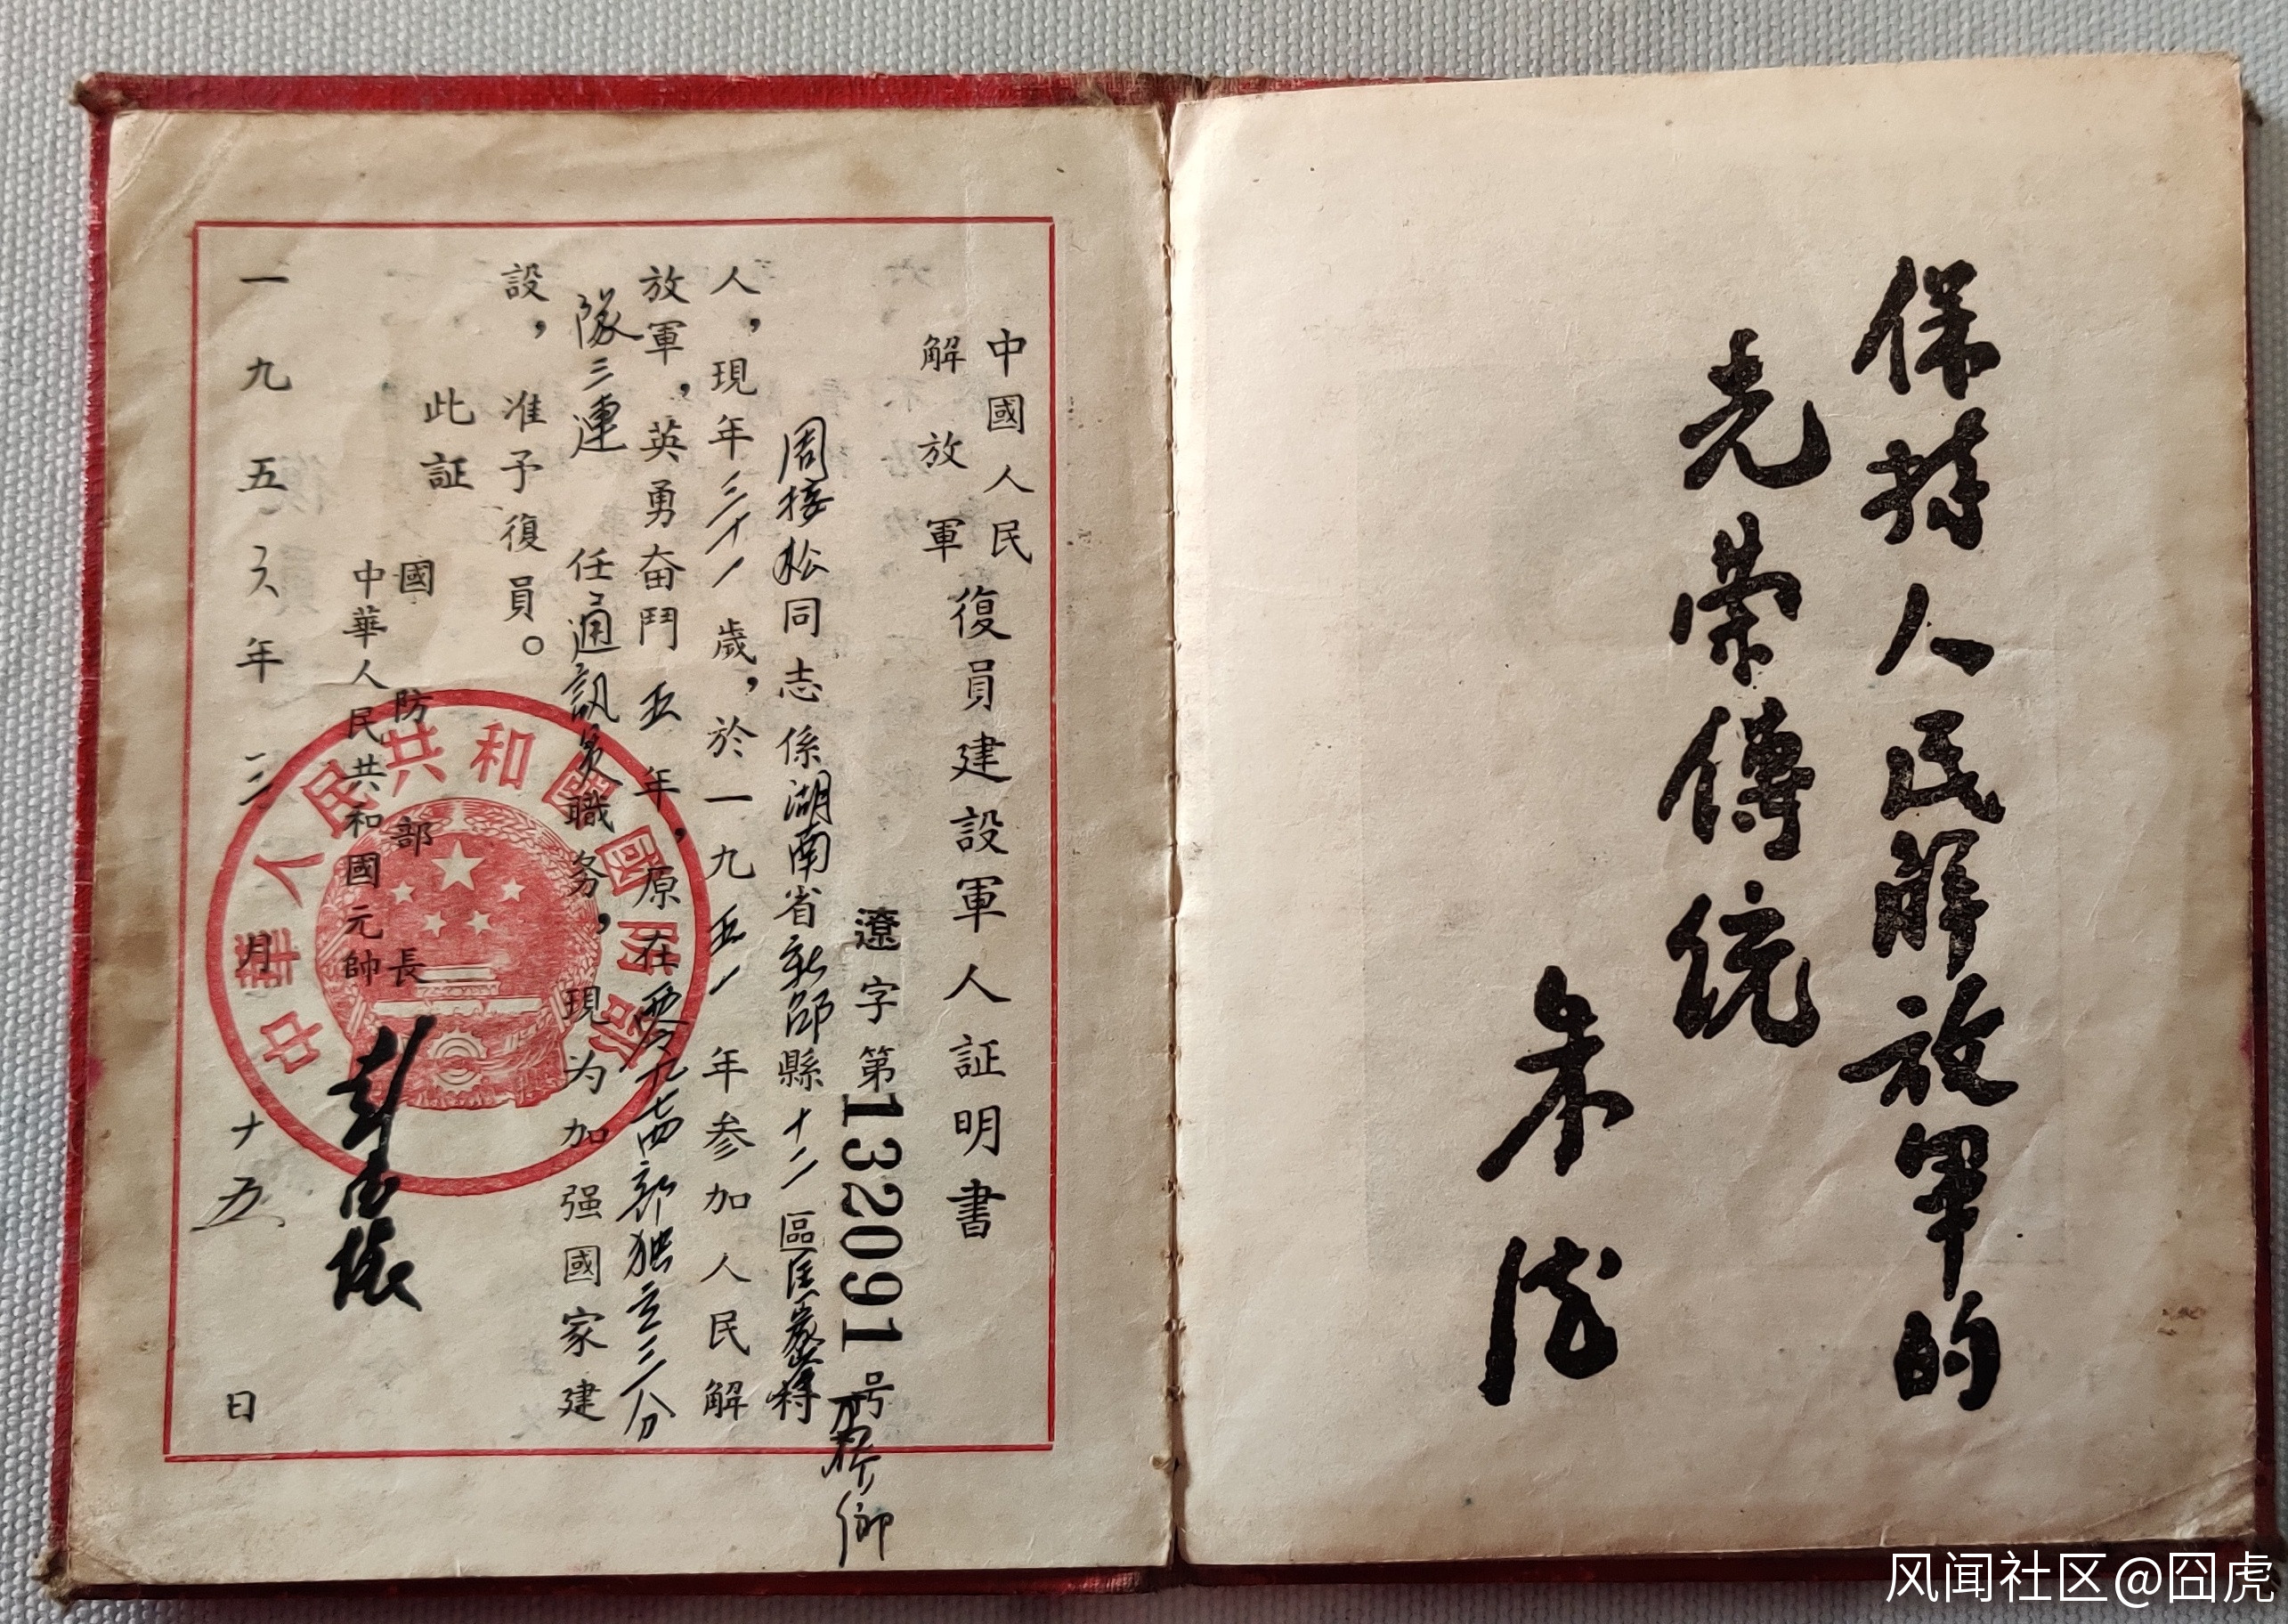 保持人民解放軍的
光荣傳統
朱德
中國人民
解放軍
復員建設軍人証明書
遼字第132091号
周接松同志係湖南省新邵縣十二區
人，現年三十一歲，於一九五一年参加人民解
放軍，英勇奋鬥五年，原在零九七四部独立三分
隊三連任通訊員職务，現为加强國家建
設，准予復員。
此証
國防部長
中華人民共和國元帥
彭德懷
一九五六年三月十五日
中華人民共和國國防部
风闻社区@囧虎